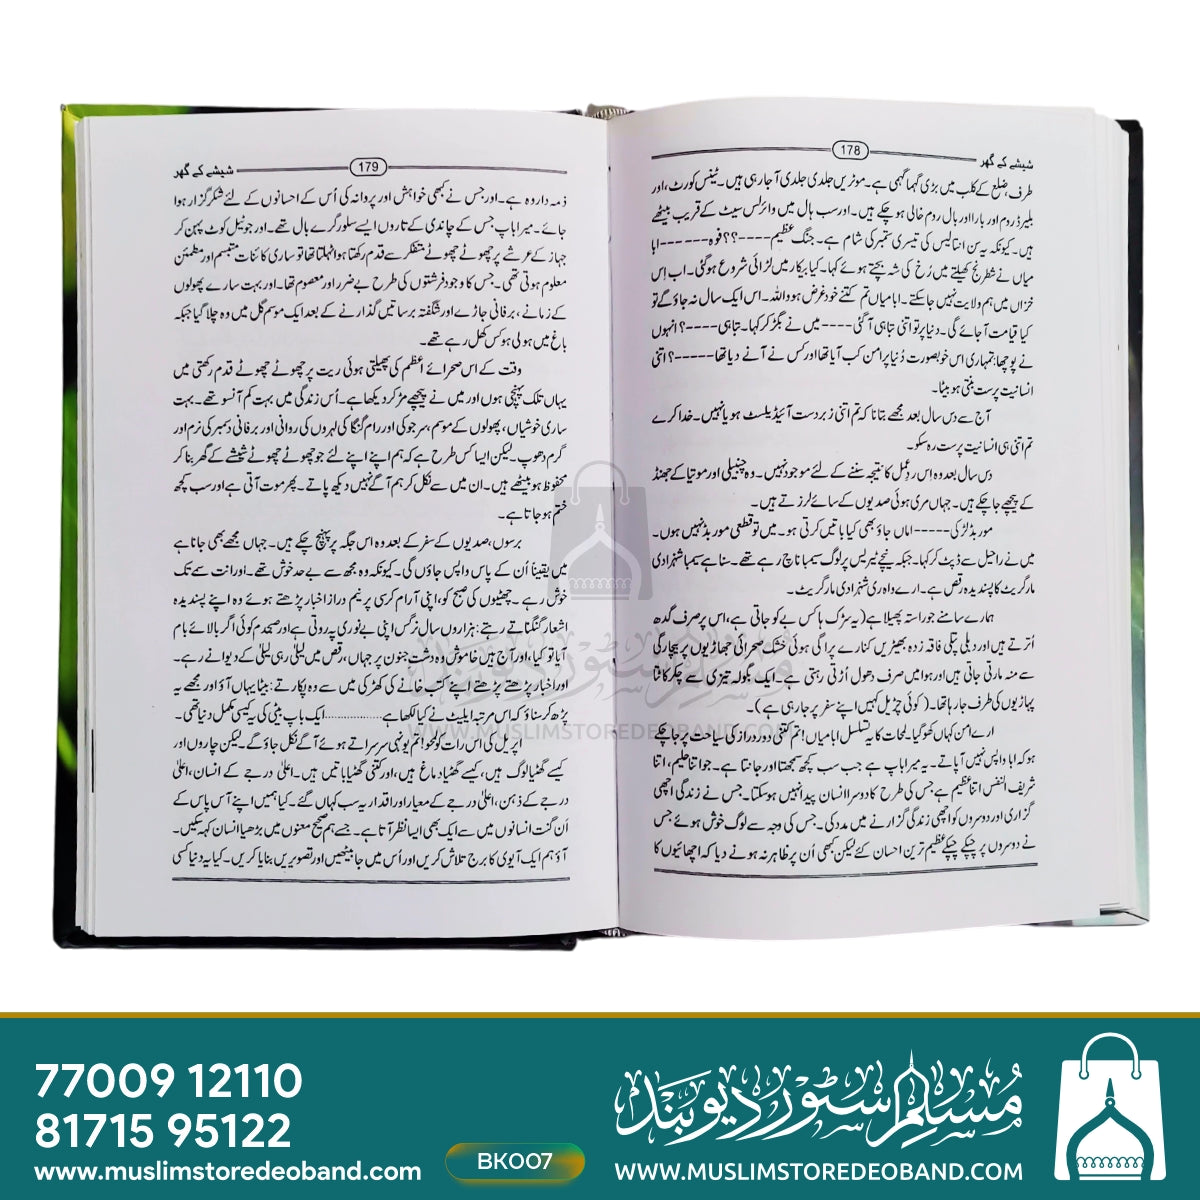 شیشے کے گھر
178
طرف، ضلع کے کلب میں بڑی گہما گہمی ہے۔ موٹریں جلدی جلدی آ جا رہی ہیں۔ ٹینس کورٹ، اور
بلیرڈ روم اور بار اور بال روم خالی ہو چکے ہیں۔ اور سب ہال میں وائرلس سیٹ کے قریب بیٹھے
ہیں۔ کیونکہ یہ سن انتالیس کی تیسری ستمبر کی شام ہے۔ جنگ عظیم----؟؟ فوہ------ابا
میاں نے شطرنج کھیلتے میں رُخ کی شہ بچتے ہوئے کہا۔ کیا بیکار میں لڑائی شروع ہوگئی۔ اب اِس
خزاں میں ہم ولایت نہیں جا سکتے۔ ابا میاں تم کتنے خود غرض ہو واللہ۔ اس ایک سال نہ جاؤ گے تو
کیا قیامت آ جائے گی۔ دنیا پر تو اتنی تباہی آ گئی----میں نے بگڑ کر کہا۔ تباہی----؟ انہوں
نے پوچھا: تمہاری اس خوبصورت دُنیا پر امن کب آیا تھا اور کس نے آنے دیا تھا-----؟ اتنی
انسانیت پرست بنتی ہو بیٹا۔
آج سے دس سال بعد مجھے بتانا کہ تم اتنی زبردست آئیڈیلسٹ ہو یا نہیں۔ خدا کرے
تم اتنی ہی انسانیت پرست رہ سکو۔
دس سال بعد وہ اس ردِعمل کا نتیجہ سننے کے لئے موجود نہیں۔ وہ چنبیلی اور موتیا کے جھنڈ
کے پیچھے جا چکے ہیں۔ جہاں مری ہوئی صدیوں کے سائے لرزتے ہیں۔
موربڈ لڑکی-----اماں جاؤ بھی کیا باتیں کرتی ہو۔ میں تو قطعی موربڈ نہیں ہوں۔
میں نے راحیل سے ڈپٹ کر کہا۔ جبکہ نیچے ٹیرس پر لوگ سمبا ناچ رہے تھے۔ سنا ہے سمبا شہزادی
مارگریٹ کا پسندیدہ رقص ہے۔ ارے واہ ری شہزادی مارگریٹ۔
ہمارے سامنے جو راستہ پھیلا ہے (یہ سڑک ہاکس بے کو جاتی ہے، اس پر صرف گدھ
اُترتے ہیں اور دبلی پتلی فاقہ زدہ بھیڑیں کنارے پر اگی ہوئی خشک صحرائی جھاڑیوں پر بیچارگی
سے منہ مارتی جاتی ہیں اور ہوا میں صرف دھول اُڑتی رہتی ہے۔ ایک بگولہ تیزی سے چکر کاٹتا
پہاڑیوں کی طرف جا رہا تھا۔ (کوئی چڑیل کہیں اپنے سفر پر جا رہی ہے)۔
ارے اَمن کہاں کھو گیا۔ لمحات کا یہ تسلسل ابا میاں! تم کتنی دور دراز کی سیاحت پر جا چکے
ہو کہ اب واپس نہیں آ پاتے۔ یہ میرا باپ ہے جب سب کچھ سمجھتا اور جانتا ہے۔ جو اتنا حلیم، اتنا
شریف النفس اتنا عظیم ہے جس کی طرح کا دوسرا انسان پیدا نہیں ہو سکتا۔ جس نے زندگی اچھی
گزاری اور دوسروں کو اچھی زندگی گزارنے میں مدد کی۔ جس کی وجہ سے لوگ خوش ہوئے جس
نے دوسروں پر چپکے چپکے عظیم ترین احسان کئے لیکن کبھی اُن پر ظاہر نہ ہونے دیا کہ اچھائیوں کا
شیشے کے گھر
179
ذمہ دار وہ ہے۔ اور جس نے کبھی خواہش اور پروانہ کی اُس کے احسانوں کے لئے شکر گزار ہوا
جائے۔ میرا باپ: جس کے چاندی کے تاروں ایسے سلور گرے بال تھے۔ اور جو نیل کوٹ پہن کر
جہاز کے عرشے پر چھوٹے چھوٹے متفکر سے قدم رکھتا ہوا ٹہلتا تھا تو ساری کائنات متبسم اور مطمئن
معلوم ہوتی تھی۔ جس کا وجود فرشتوں کی طرح بے ضرر اور معصوم تھا۔ اور بہت سارے پھولوں
کے زمانے، برفانی جاڑے اور شگفتہ برساتیں گذارنے کے بعد ایک موسم گل میں وہ چلا گیا جبکہ
باغ میں ہولی ہوکس کھل رہے تھے۔
وقت کے اس صحرائے اعظم کی پھیلتی ہوئی ریت پر چھوٹے چھوٹے قدم رکھتی میں
یہاں تلک پہنچی ہوں اور میں نے پیچھے مڑ کر دیکھا ہے۔ اُس زندگی میں بہت کم آنسو تھے۔ بہت
ساری خوشیاں، پھولوں کے موسم، سرجو کی اور رام گنگا کی لہروں کی روانی اور برفانی دسمبر کی نرم اور
گرم دھوپ۔ لیکن ایسا کس طرح ہے کہ ہم اپنے اپنے لئے جو چھوٹے چھوٹے شیشے کے گھر بنا کر
محفوظ ہو بیٹھے ہیں۔ ان میں سے نکل کر ہم آگے نہیں دیکھ پاتے۔ پھر موت آتی ہے اور سب کچھ
ختم ہو جاتا ہے۔
برسوں، صدیوں کے سفر کے بعد وہ اس جگہ پر پہنچ چکے ہیں۔ جہاں مجھے بھی جانا ہے
میں یقیناً اُن کے پاس واپس جاؤں گی۔ کیونکہ وہ مجھ سے بے حد خوش تھے۔ اور انت سمے تک
خوش رہے۔ چھٹیوں کی صبح کو، اپنی آرام کرسی پر نیم دراز اخبار پڑھتے ہوئے وہ اپنے پسندیدہ
اشعار گنگناتے رہتے: ہزاروں سال نرگس اپنی بے نوری پہ روتی ہے اور صبحدم کوئی اگر بالائے بام
آیا تو کیا، اور آج ہیں خاموش وہ دشت جنوں پر جہاں، رقص میں لیلیٰ رہی لیلیٰ کے دیوانے رہے۔
اور اخبار پڑھتے پڑھتے اپنے کتب خانے کی کھڑکی میں سے وہ پکارتے: بیٹا یہاں آؤ اور مجھے یہ
پڑھ کر سناؤ کہ اس مرتبہ ایلیٹ نے کیا لکھا ہے................ ایک باپ بیٹی کی یہ کیسی مکمل دنیا تھی۔
اپریل کی اس رات کو لمحو! تم یونہی سرسراتے ہوئے آگے نکل جاؤ گے۔ لیکن چاروں اور
کیسے گھٹیا لوگ ہیں، کیسے گھٹیا دماغ ہیں، اور کتنی گھٹیا باتیں ہیں۔ اعلیٰ درجے کے انسان، اعلیٰ
درجے کے ذہن، اعلیٰ درجے کے معیار اور اقدار یہ سب کہاں گئے۔ کیا ہمیں اپنے آس پاس کے
اُن گنت انسانوں میں سے ایک بھی ایسا نظر آتا ہے۔ جسے ہم صحیح معنوں میں بڑھیا انسان کہہ سکیں۔
آؤ ہم ایک آیوی کا برج تلاش کریں اور اُس میں جا بیٹھیں اور تصویریں بنایا کریں۔ کیا یہ دنیا کسی
مسلم سٹور دیوبند
WWW.MUSLIMSTOREDEOBAND.COM
77009 12110
81715 95122
www.muslimstoredeoband.com
BK007
مسلم سٹور دیوبند
WWW.MUSLIMSTOREDEOBAND.COM